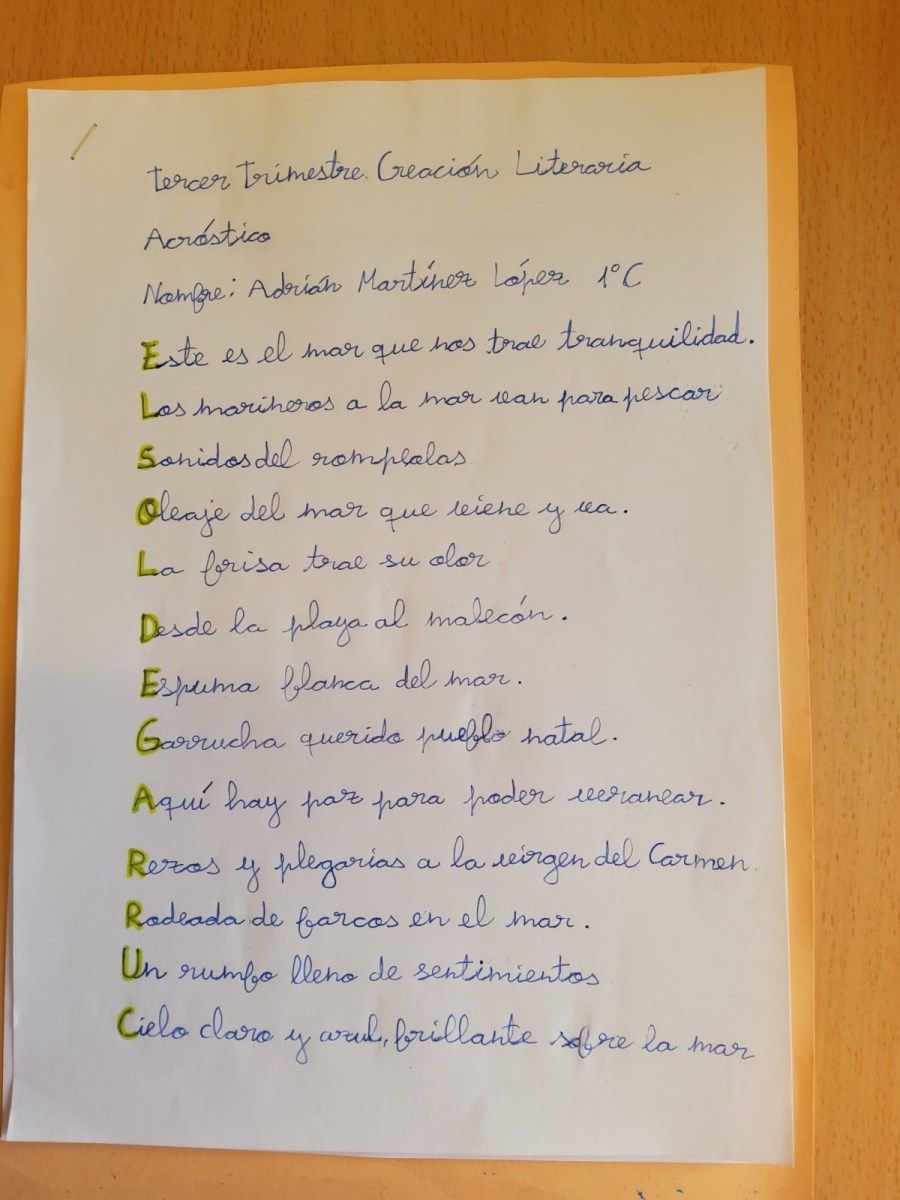 Tercer Trimestre. Creación Literaria
Acróstico
Nombre: Adrián Martínez López 1º C
Este es el mar que nos trae tranquilidad.
Los marineros a la mar van para pescar
Sonidos del rompeolas
Oleaje del mar que viene y va.
La brisa trae su olor
Desde la playa al malecón.
Espuma blanca del mar.
Garrucha querido pueblo natal.
Aquí hay paz para poder veranear.
Rezos y plegarias a la virgen del Carmen.
Rodeada de barcos en el mar.
Un rumbo lleno de sentimientos
Cielo claro y azul, brillante sobre la mar